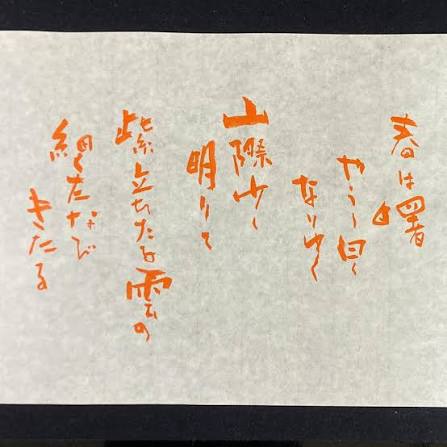 春は曙
やうやう白く
なりゆく
山際少し
明りて
紫立ちたる雲の
細くたなび
きたる